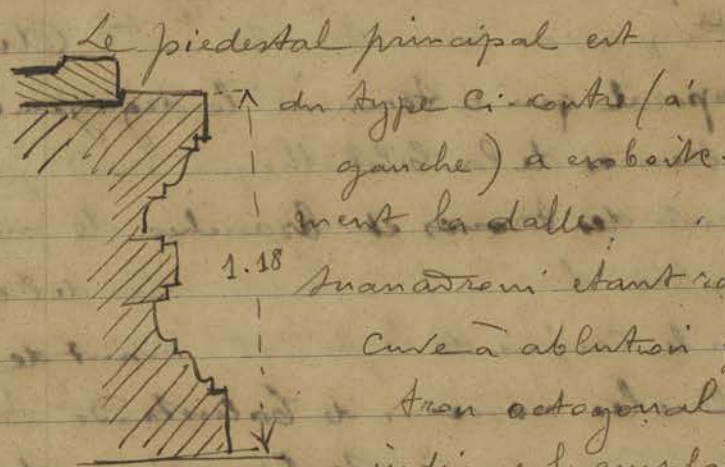 Le piedestal principal est
du type ci-contre (à
gauche) a emboite-
ment la dalle
1.18
snanadroni étant
cuve à ablution
tron octogonal